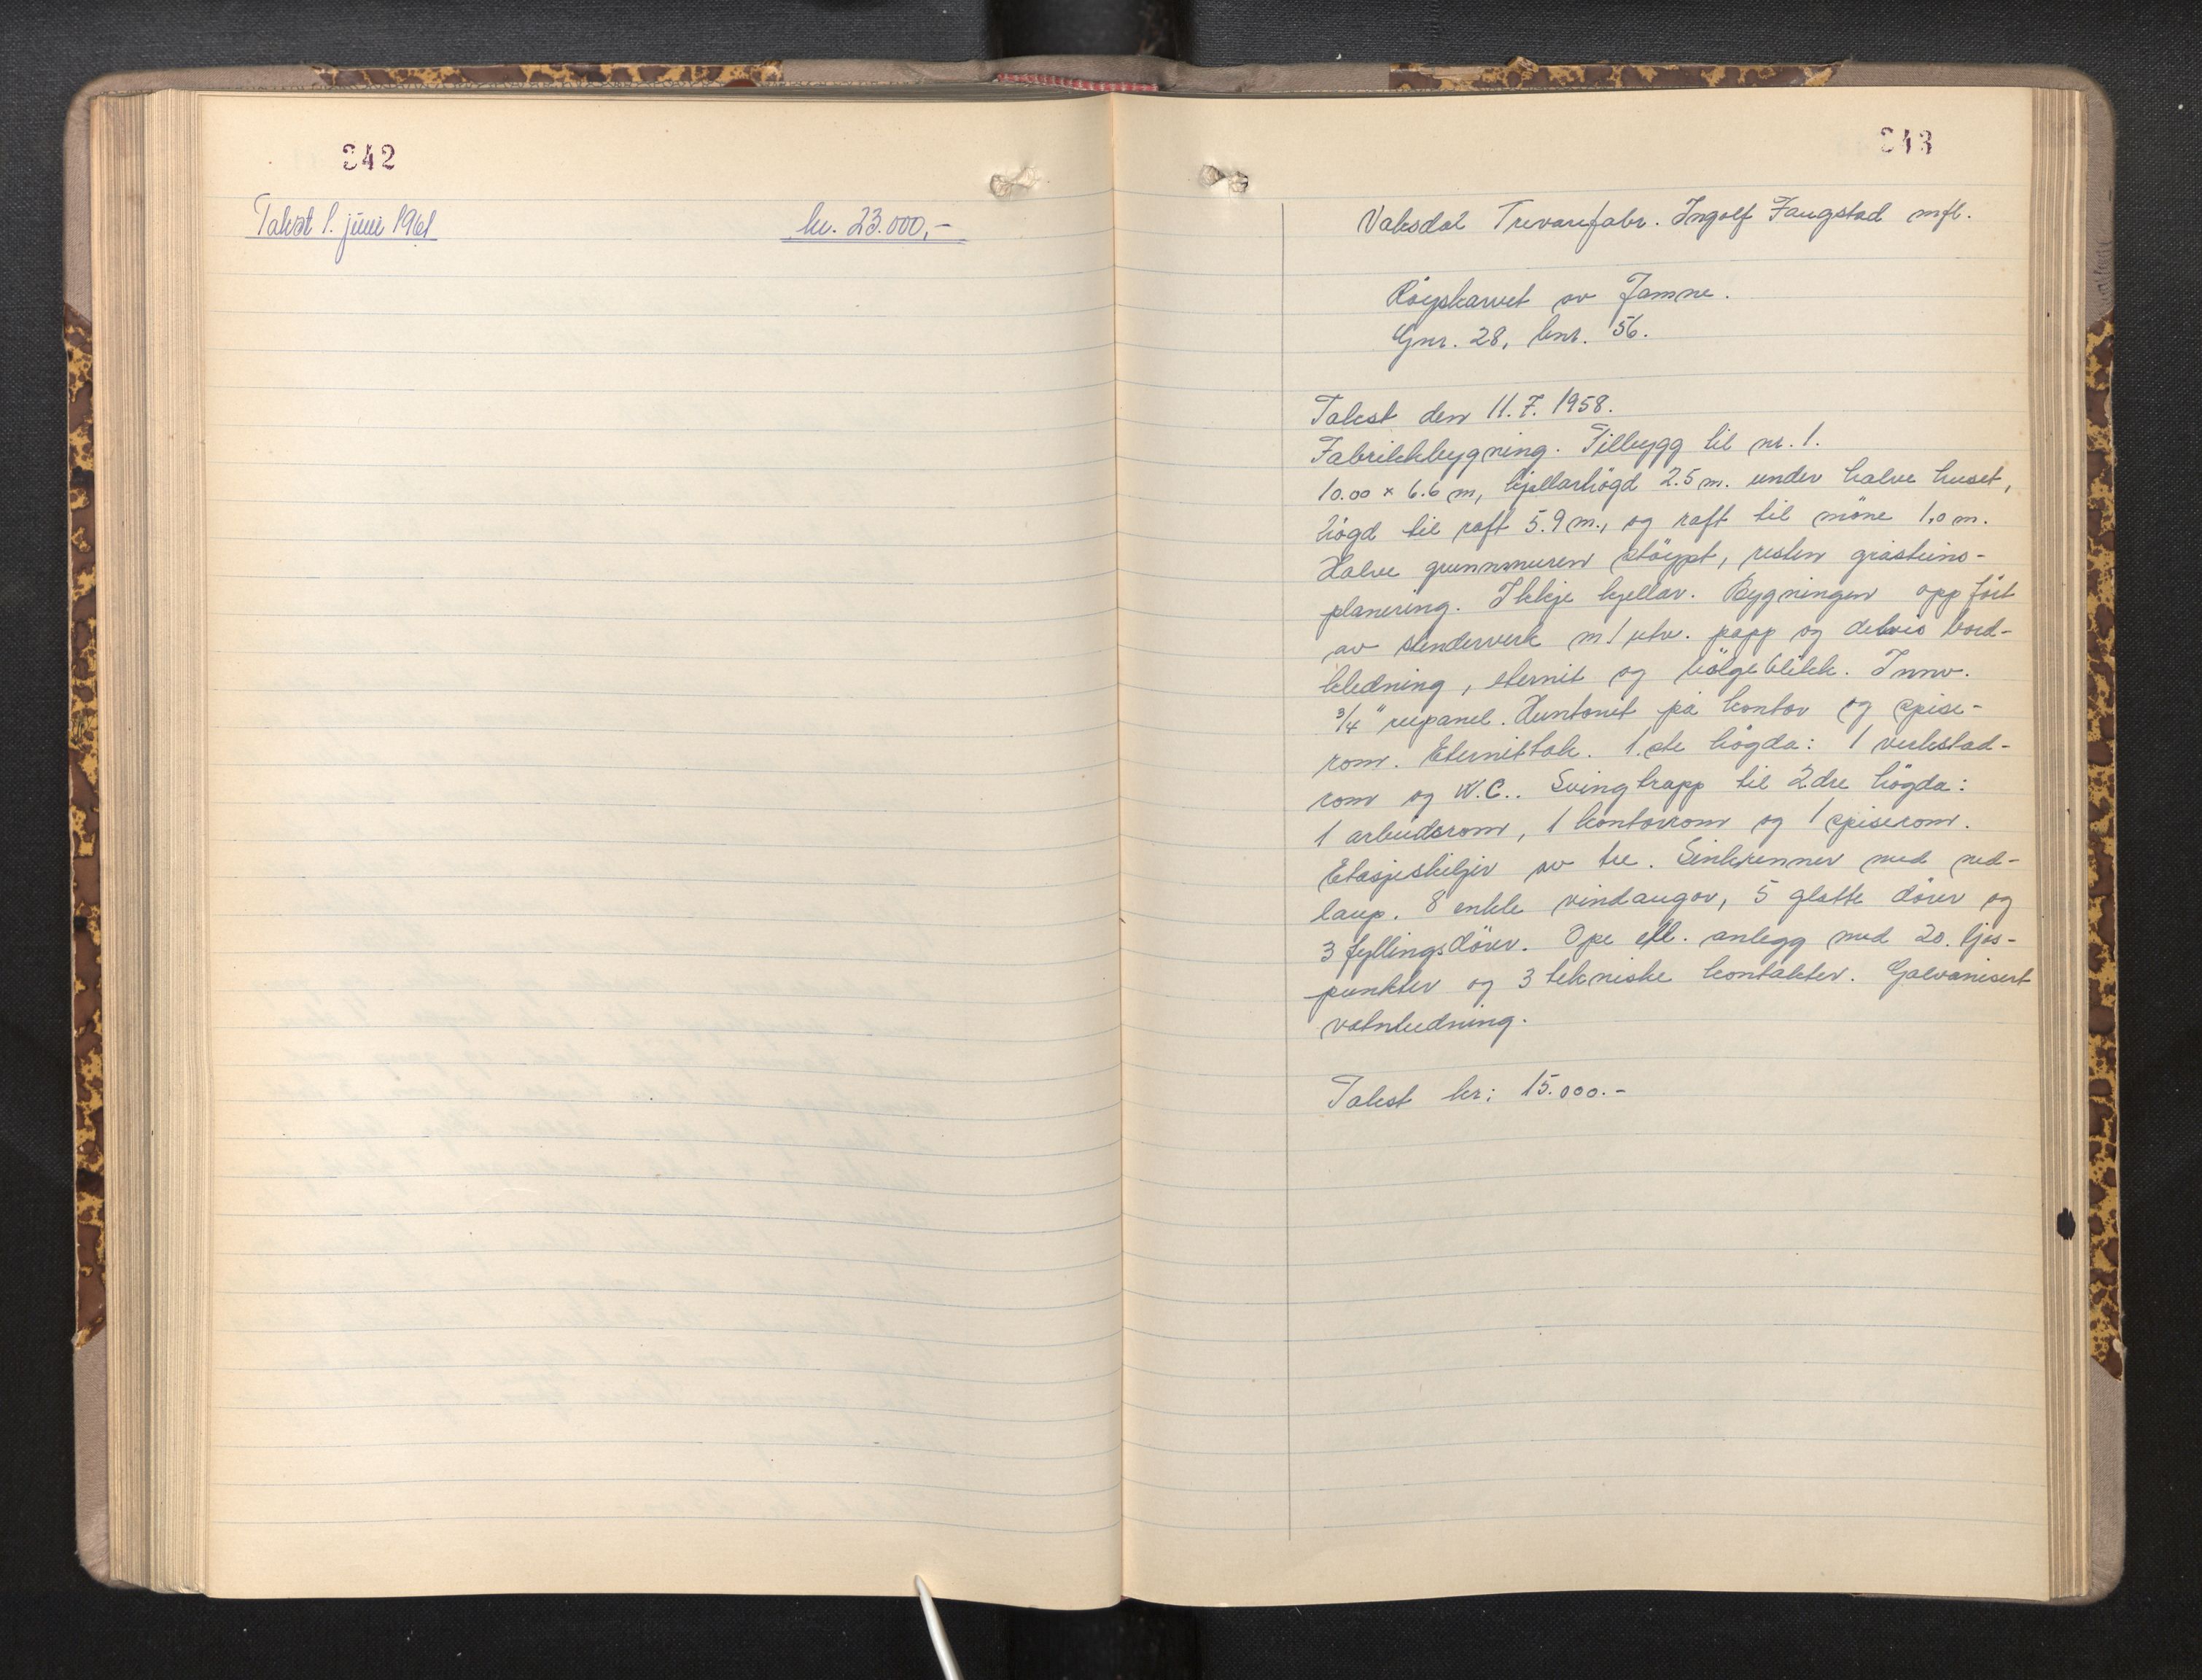 242
Takst 1. juni 1961 kr. 23.000,-
243
Vaksdal Trevarefabr. Ingolf Faugstad mfl.
Röyskarvet av Jamne.
Gnr. 28, bnr. 56.
Takst den 11.7.1958.
Fabrikkbygning. Tilbygg til nr. 1.
10.00 x 6.6 m, kjellarhögd 2.5 m. under halve huset,
högd til raft 5.9 m., og raft til möne 1,0 m.
Halve grunnmuren stöypt, resten gråsteins-
planering. Ikkje kjellar. Bygningen oppfört
av stenderverk m/ utv. papp og delvis bord-
kledning, eternit og bölgeblikk. Innv.
3/4" rupanel. Huntonit på kontor og spise-
rom. Eternittak. 1.ste högda: 1 verkstad-
rom og W.C.. Svingtrapp til 2dre högda:
1 arbeidsrom, 1 kontorrom og 1 spiserom.
Etasjeskiljer av tre. Sinkrenner med ned-
laup. 8 enkle vindaugor, 5 glatte dörer og
3 fyllingsdörer. Ope ell. anlegg med 20. ljos-
punkter og 3 tekniske kontakter. Galvanisert
vatnledning.
Takst kr: 15.000.-